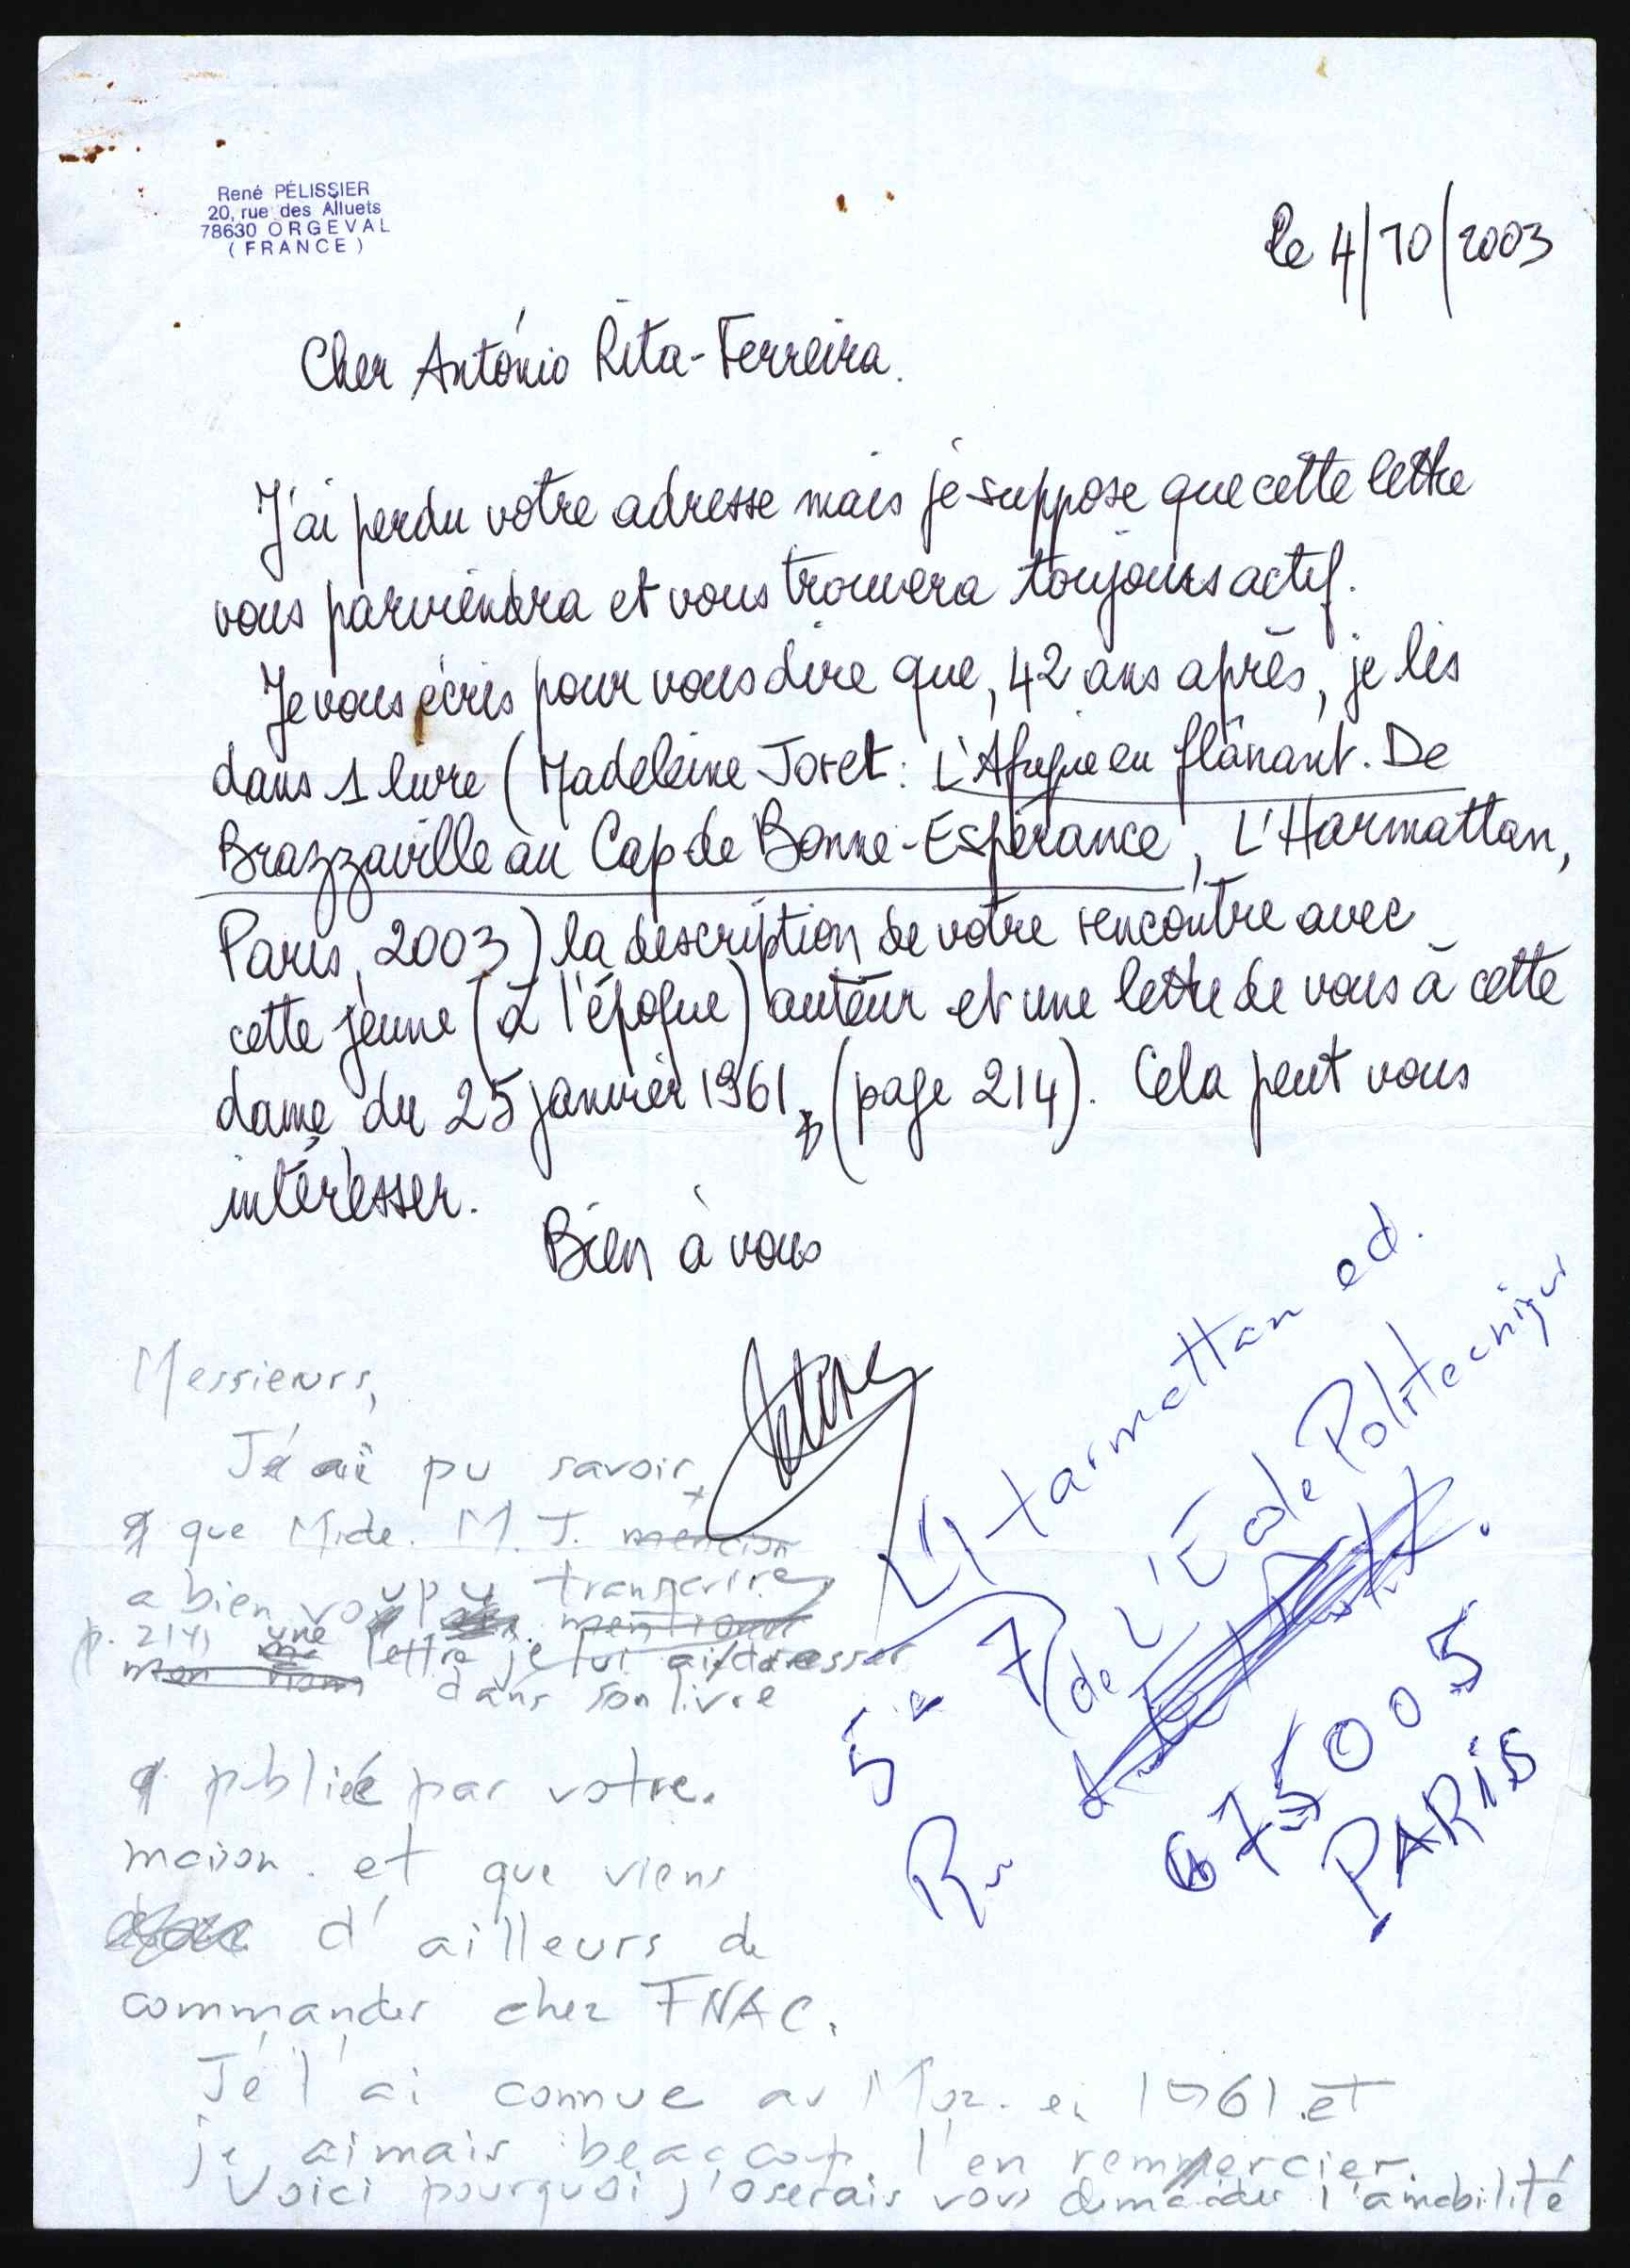 René PÉLISSIER
20, rue des Alluets
78630 ORGEVAL
(FRANCE)
le 4/10/2003
Cher António Rita-Ferreira.
J'ai perdu votre adresse mais je suppose que cette lettre
vous parviendra et vous trouvera toujours actif.
Je vous écris pour vous dire que, 42 ans après, je lis
dans 1 livre (Madeleine Joret: L'Afrique en flânant. De
Brazzaville au Cap de Bonne-Espérance, L'Harmattan,
Paris, 2003) la description de votre rencontre avec
cette jeune (à l'époque) auteur et une lettre de vous à cette
dame du 25 janvier 1961, (page 214). Cela peut vous
intéresser.
Bien à vous
Messieurs,
J'ai pu savoir
que Mde. M. J. mencion
a bien voulu transcrire
p. 214, une lettre je lui ai
mon nom dans son livre
publiée par votre.
maison. et que viens
d'ailleurs de
commander chez FNAC.
Jé l'ai connue au Moz. en 1961 et
je aimais beaucoup l'en remercier.
Voici pourquoi j'oserais vous demander l'amabilité
L'Harmattan ed.
5-7
Ru de L'École Politecnique
75005
PARIS